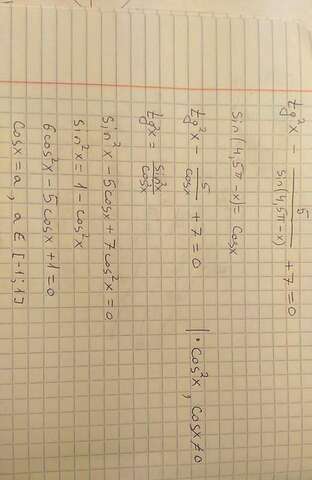 tg²x - 5/sin(4,5π-x) + 7 = 0
sin(4,5π-x) = cosx
tg²x - 5/cosx + 7 = 0 | · cos²x, cosx ≠ 0
tg²x = sin²x/cos²x
sin²x - 5cosx + 7cos²x = 0
sin²x = 1 - cos²x
6cos²x - 5cosx + 1 = 0
cosx = a, a ∈ [-1;1]